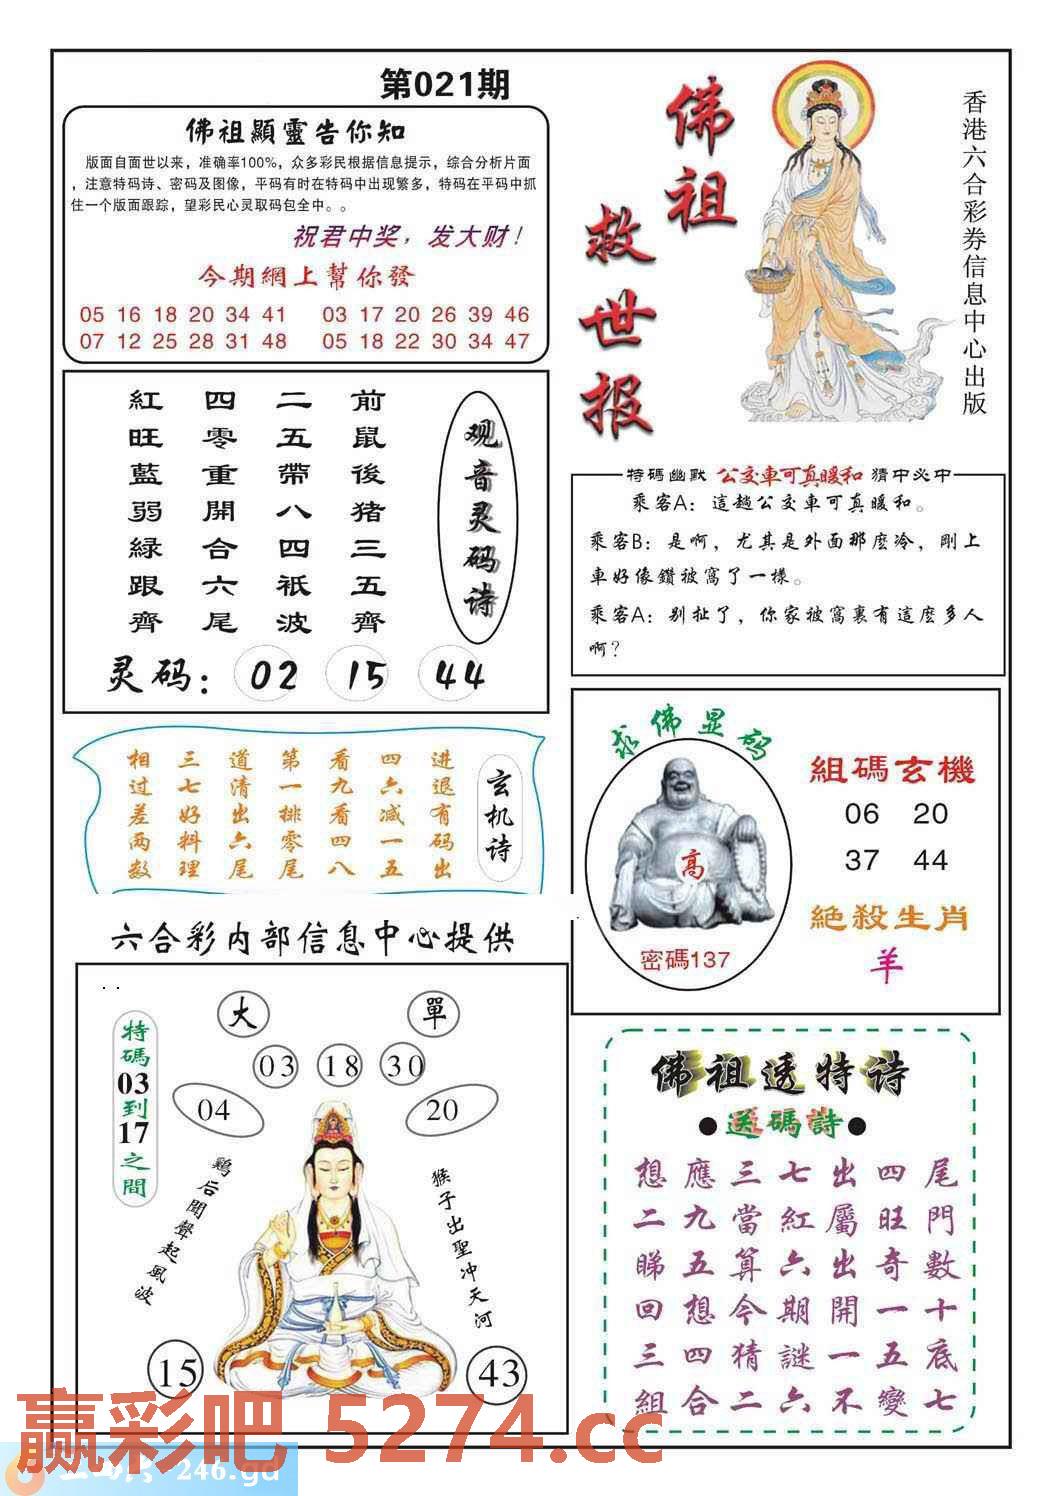 第021期
佛祖顯靈告你知
版面自面世以来，准确率100%，众多彩民根据信息提示，综合分析片面
，注意特码诗、密码及图像，平码有时在特码中出现繁多，特码在平码中抓
住一个版面跟踪，望彩民心灵取码包全中。。
祝君中奖，发大财！
今期網上幫你發
05 16 18 20 34 41 03 17 20 26 39 46
07 12 25 28 31 48 05 18 22 30 34 47
佛祖
救世报
香港六合彩券信息中心出版
观音灵码诗
前鼠後猪三五齊
二五帶八四祇波
四零重開合六尾
紅旺藍弱緑跟齊
灵码：02 15 44
特碼幽默 公交車可真暖和 猜中必中
乘客A：這趟公交車可真暖和。
乘客B：是啊，尤其是外面那麽冷，剛上
車好像鑽被窩了一樣。
乘客A：别扯了，你家被窩裏有這麽多人
啊？
玄机诗
进退有码出
四六减一五
看九看四八
第一排零尾
道清出六尾
三七好料理
相过差两数
求佛显码
高
密碼137
組碼玄機
06 20
37 44
絶殺生肖
羊
六合彩内部信息中心提供
大 單
03 18 30
04 20
特碼03到17之間
鷄后聞聲起風波
猴子出聖冲天河
15 43
佛祖透特诗
●送碼詩●
想應三七出四尾
二九當紅屬旺門
睇五算六出奇數
回想今期開一十
三四猜謎一五底
組合二六不變七
赢彩吧 5274.cc
246.gd